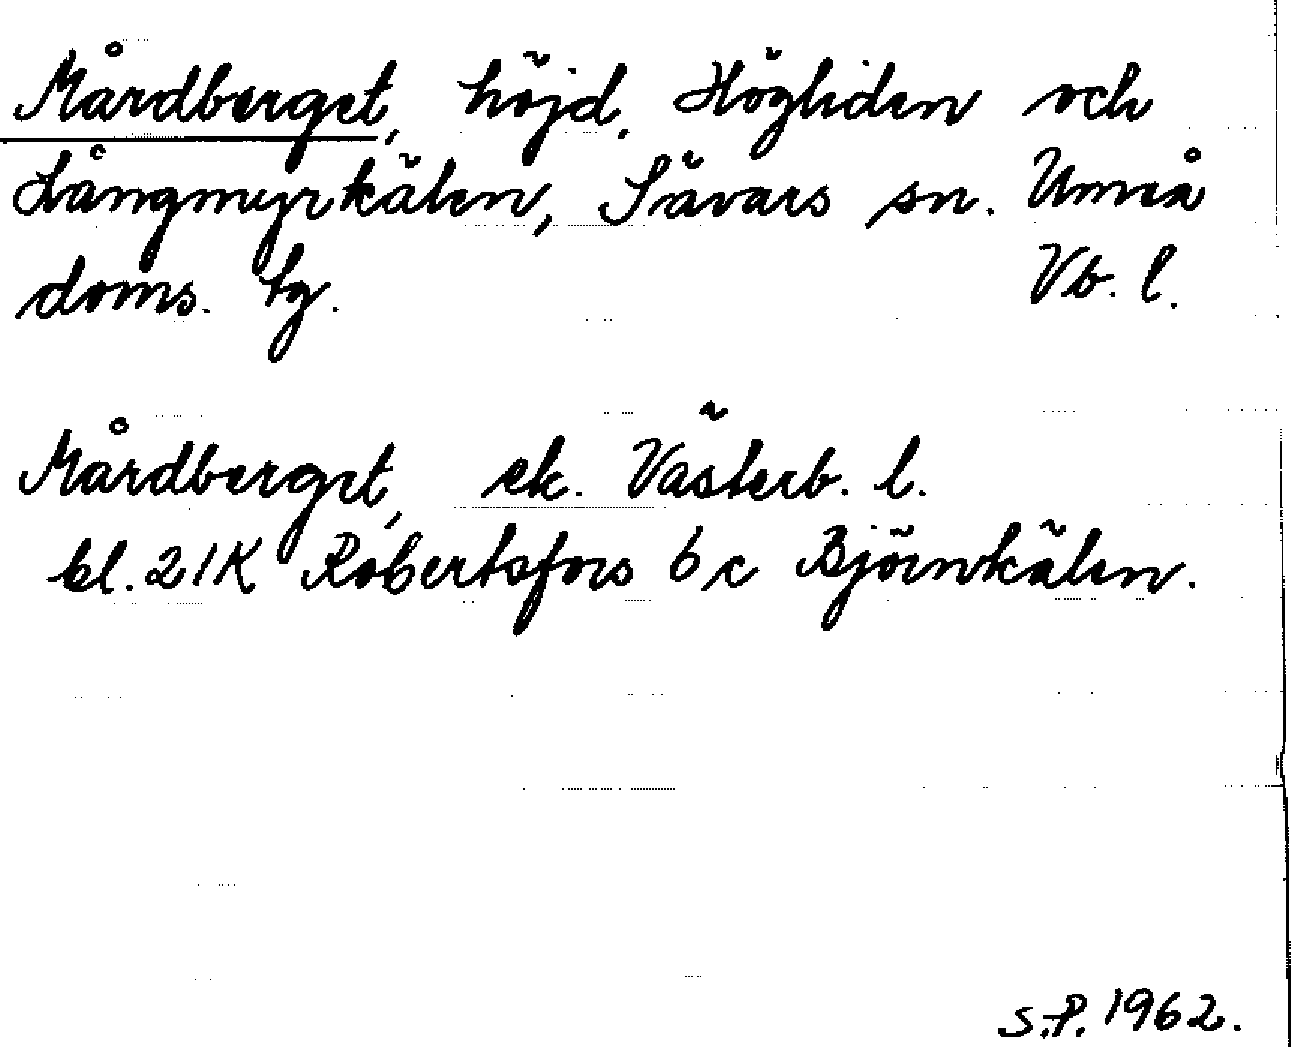 Mårdberget, höjd, Högliden och
Långmyrkälen, Sävars sn. Umeå
doms. tg. Vb. l.
Mårdberget, ek. Västerb. l.
bl. 21K Robertsfors 6 c Björnkälen.
S.P. 1962.